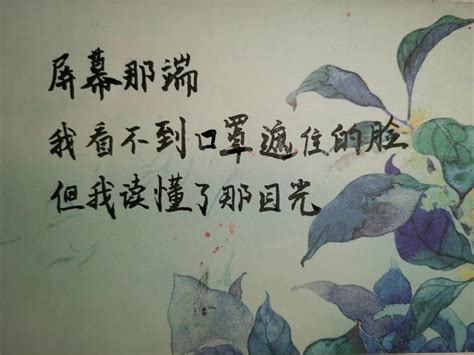 屏幕那端
我看不到口罩遮住的脸
但我读懂了那目光